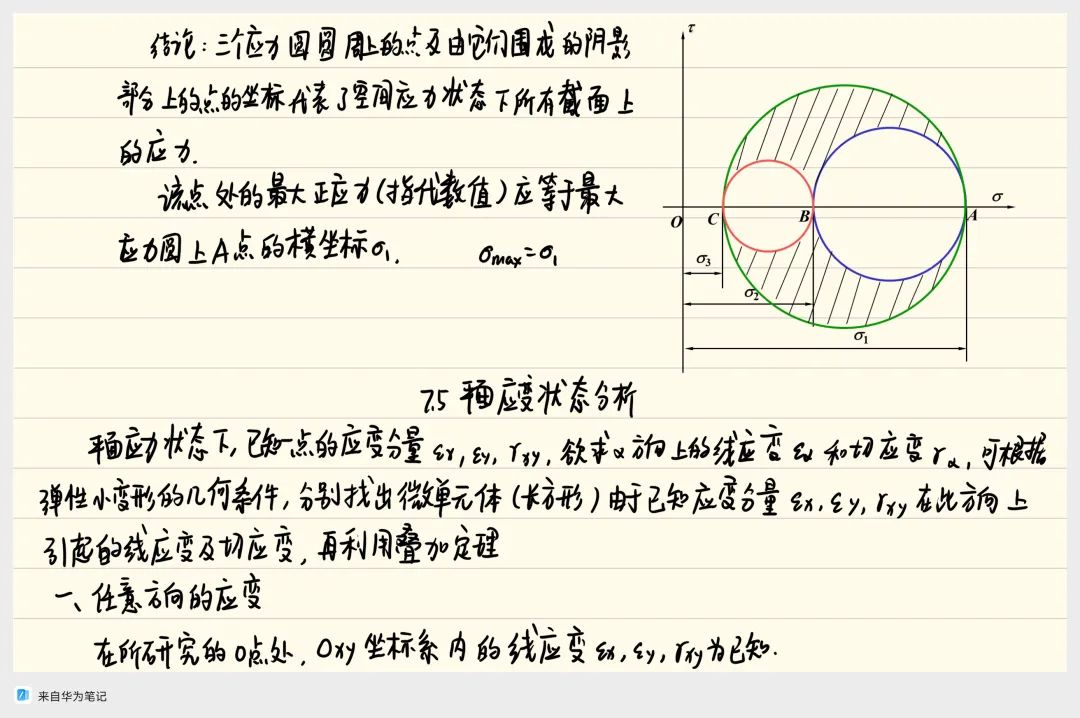 结论:三个应力圆圆周上的点及由它们围成的阴影
部分上的点的坐标代表了空间应力状态下所有截面上
的应力.
该点处的最大正应力(指代数值)应等于最大
应力圆上A点的横坐标σ1.
σmax=σ1
τ
σ
O
C
B
A
σ3
σ2
σ1
7.5 平面应变状态分析
平面应力状态下,已知一点的应变分量 εx, εy, γxy, 欲求α方向上的线应变 εα 和切应变 γα, 可根据
弹性小变形的几何条件, 分别找出微单元体(长方形)由于已知应变分量 εx, εy, γxy 在此方向上
引起的线应变及切应变, 再利用叠加定理
一、任意方向的应变
在所研究的O点处, Oxy 坐标系内的线应变 εx, εy, γxy 为已知.
来自华为笔记